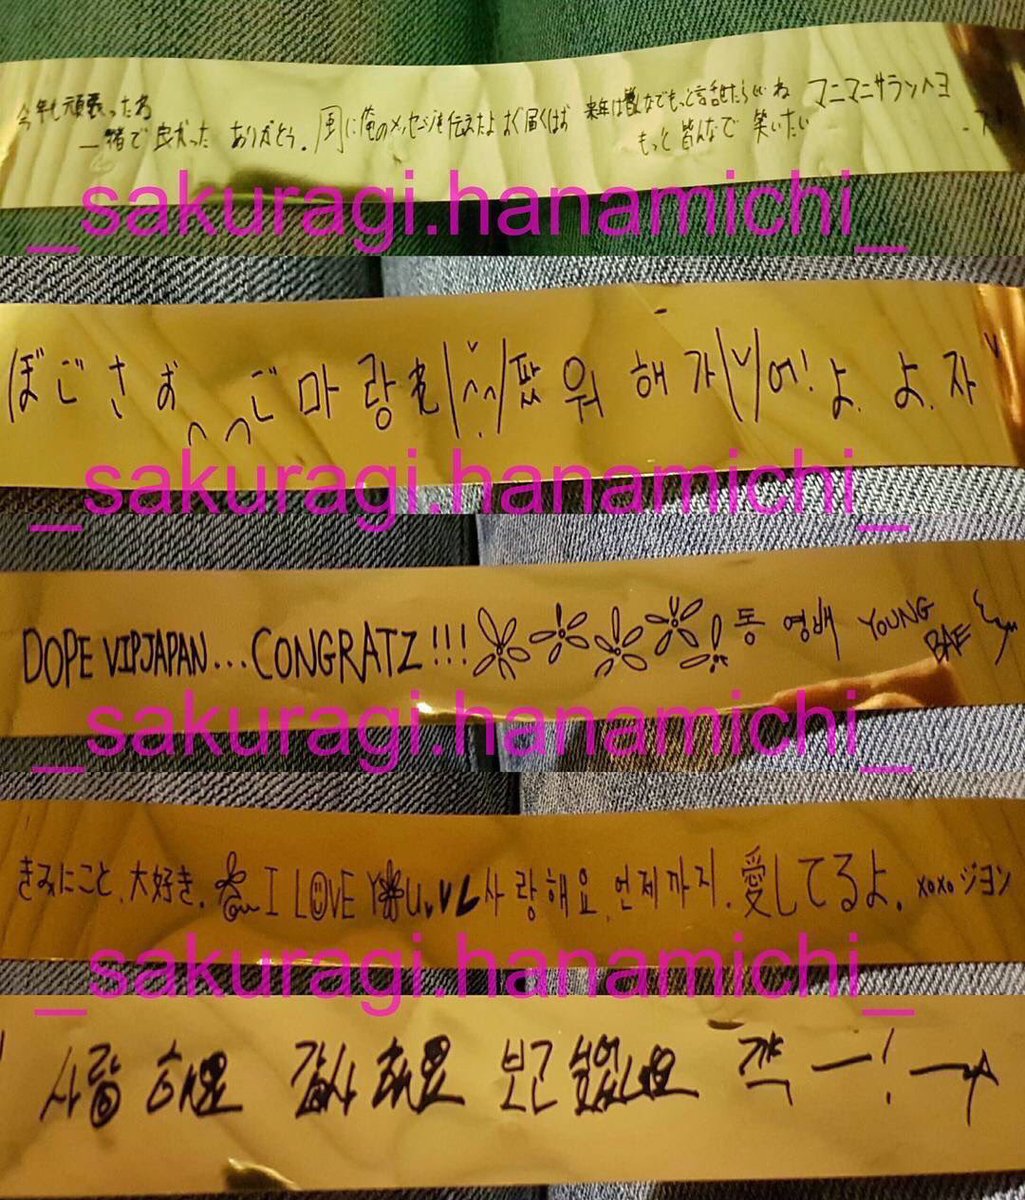 今年も頑張ったね
一緒で良かった ありがとう. 風に俺のメッセージを伝えたよ よく届くはず 来年は皆なでもっと話せたらいいね マニマニサランヘヨ
もっと皆んなで笑いたい
_sakuragi.hanamichi_
ぼ ご さ ご 마 랑 워 해 가 어! よ. よ. 자
_sakuragi.hanamichi_
DOPE VIPJAPAN... CONGRATZ!!! 동 영배 YOUNG BAE
_sakuragi.hanamichi_
きみにこと、大好き. I LOVE YOU 사랑해요. 언제까지. 愛してるよ. xoxo ジヨン
_sakuragi.hanamichi_
사랑해요 감사해요 보고싶었어요